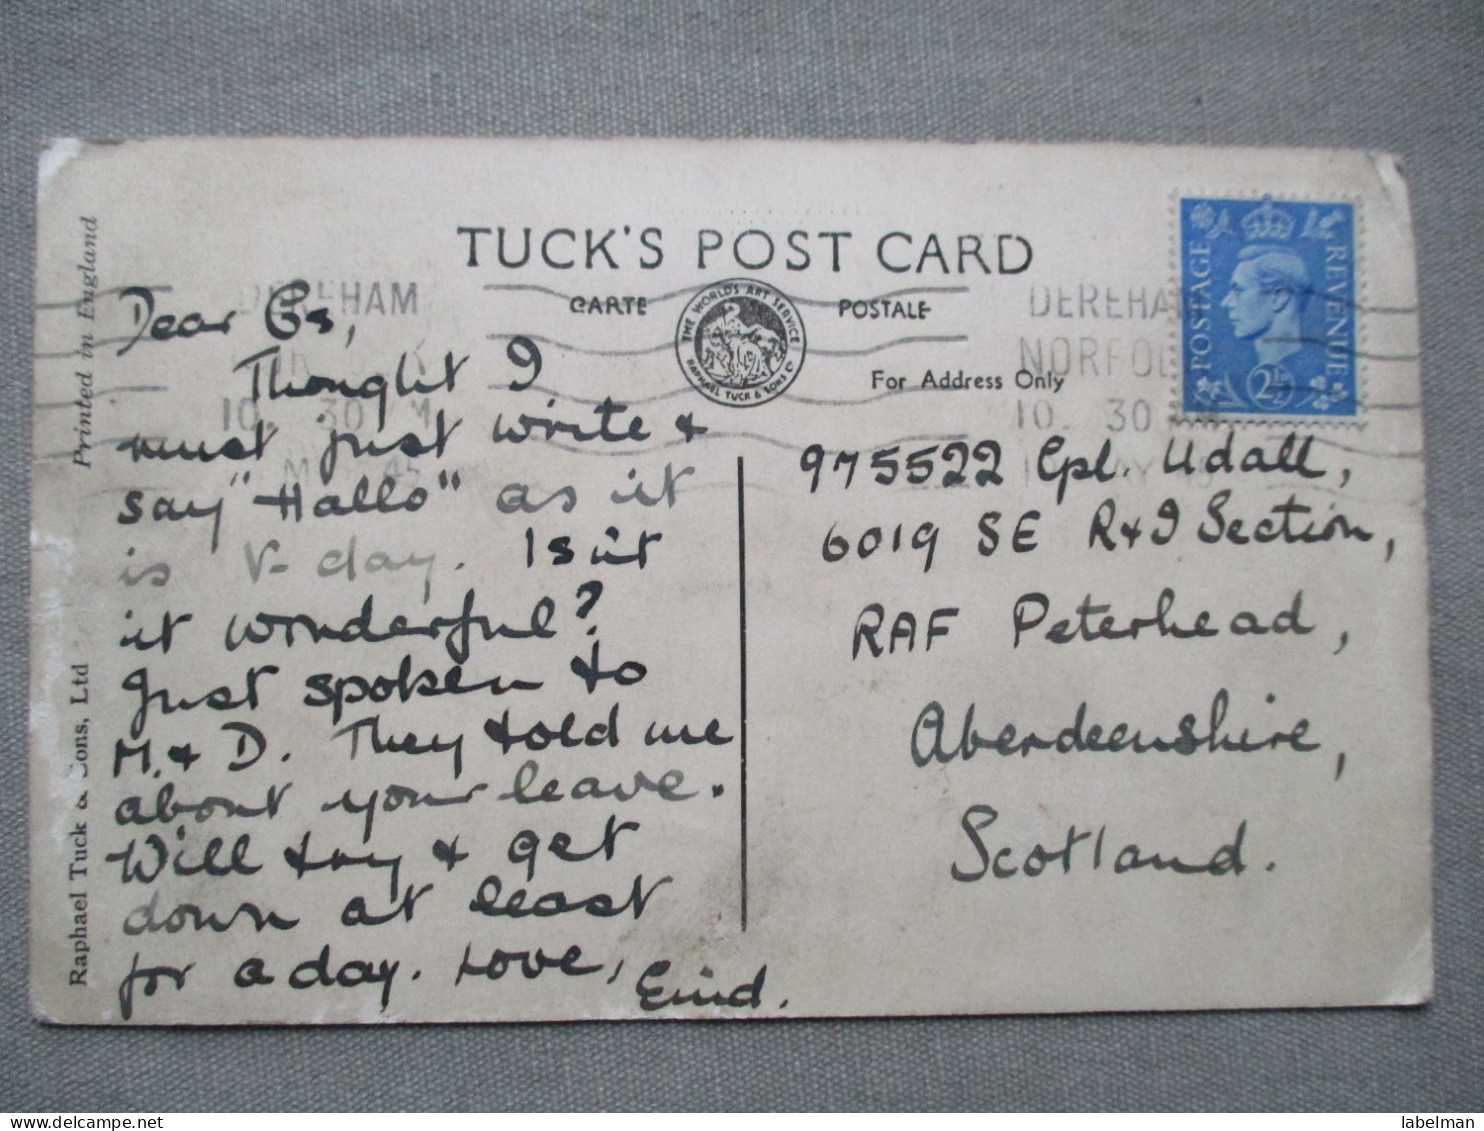 TUCK'S POST CARD
CARTE POSTALE
THE WORLD'S ART SERVICE
RAPHAEL TUCK & SONS LD
For Address Only
Printed in England
Raphael Tuck & Sons, Ltd
DEREHAM
10. 30 AM
MAY 45
DEREHAM
NORFOLK
10. 30 AM
MAY 45
POSTAGE REVENUE
2½
Dear
Thought I
must just write &
say "Hallo" as it
is V-day. Isn't
it wonderful?
Just spoken to
M. & D. They told me
about your leave.
Will try & get
down at least
for a day. Love,
Enid.
975522 Cpl. Udall,
6019 SE R & I Section,
RAF Peterhead,
Aberdeenshire,
Scotland.
labelman
www.delcampe.net